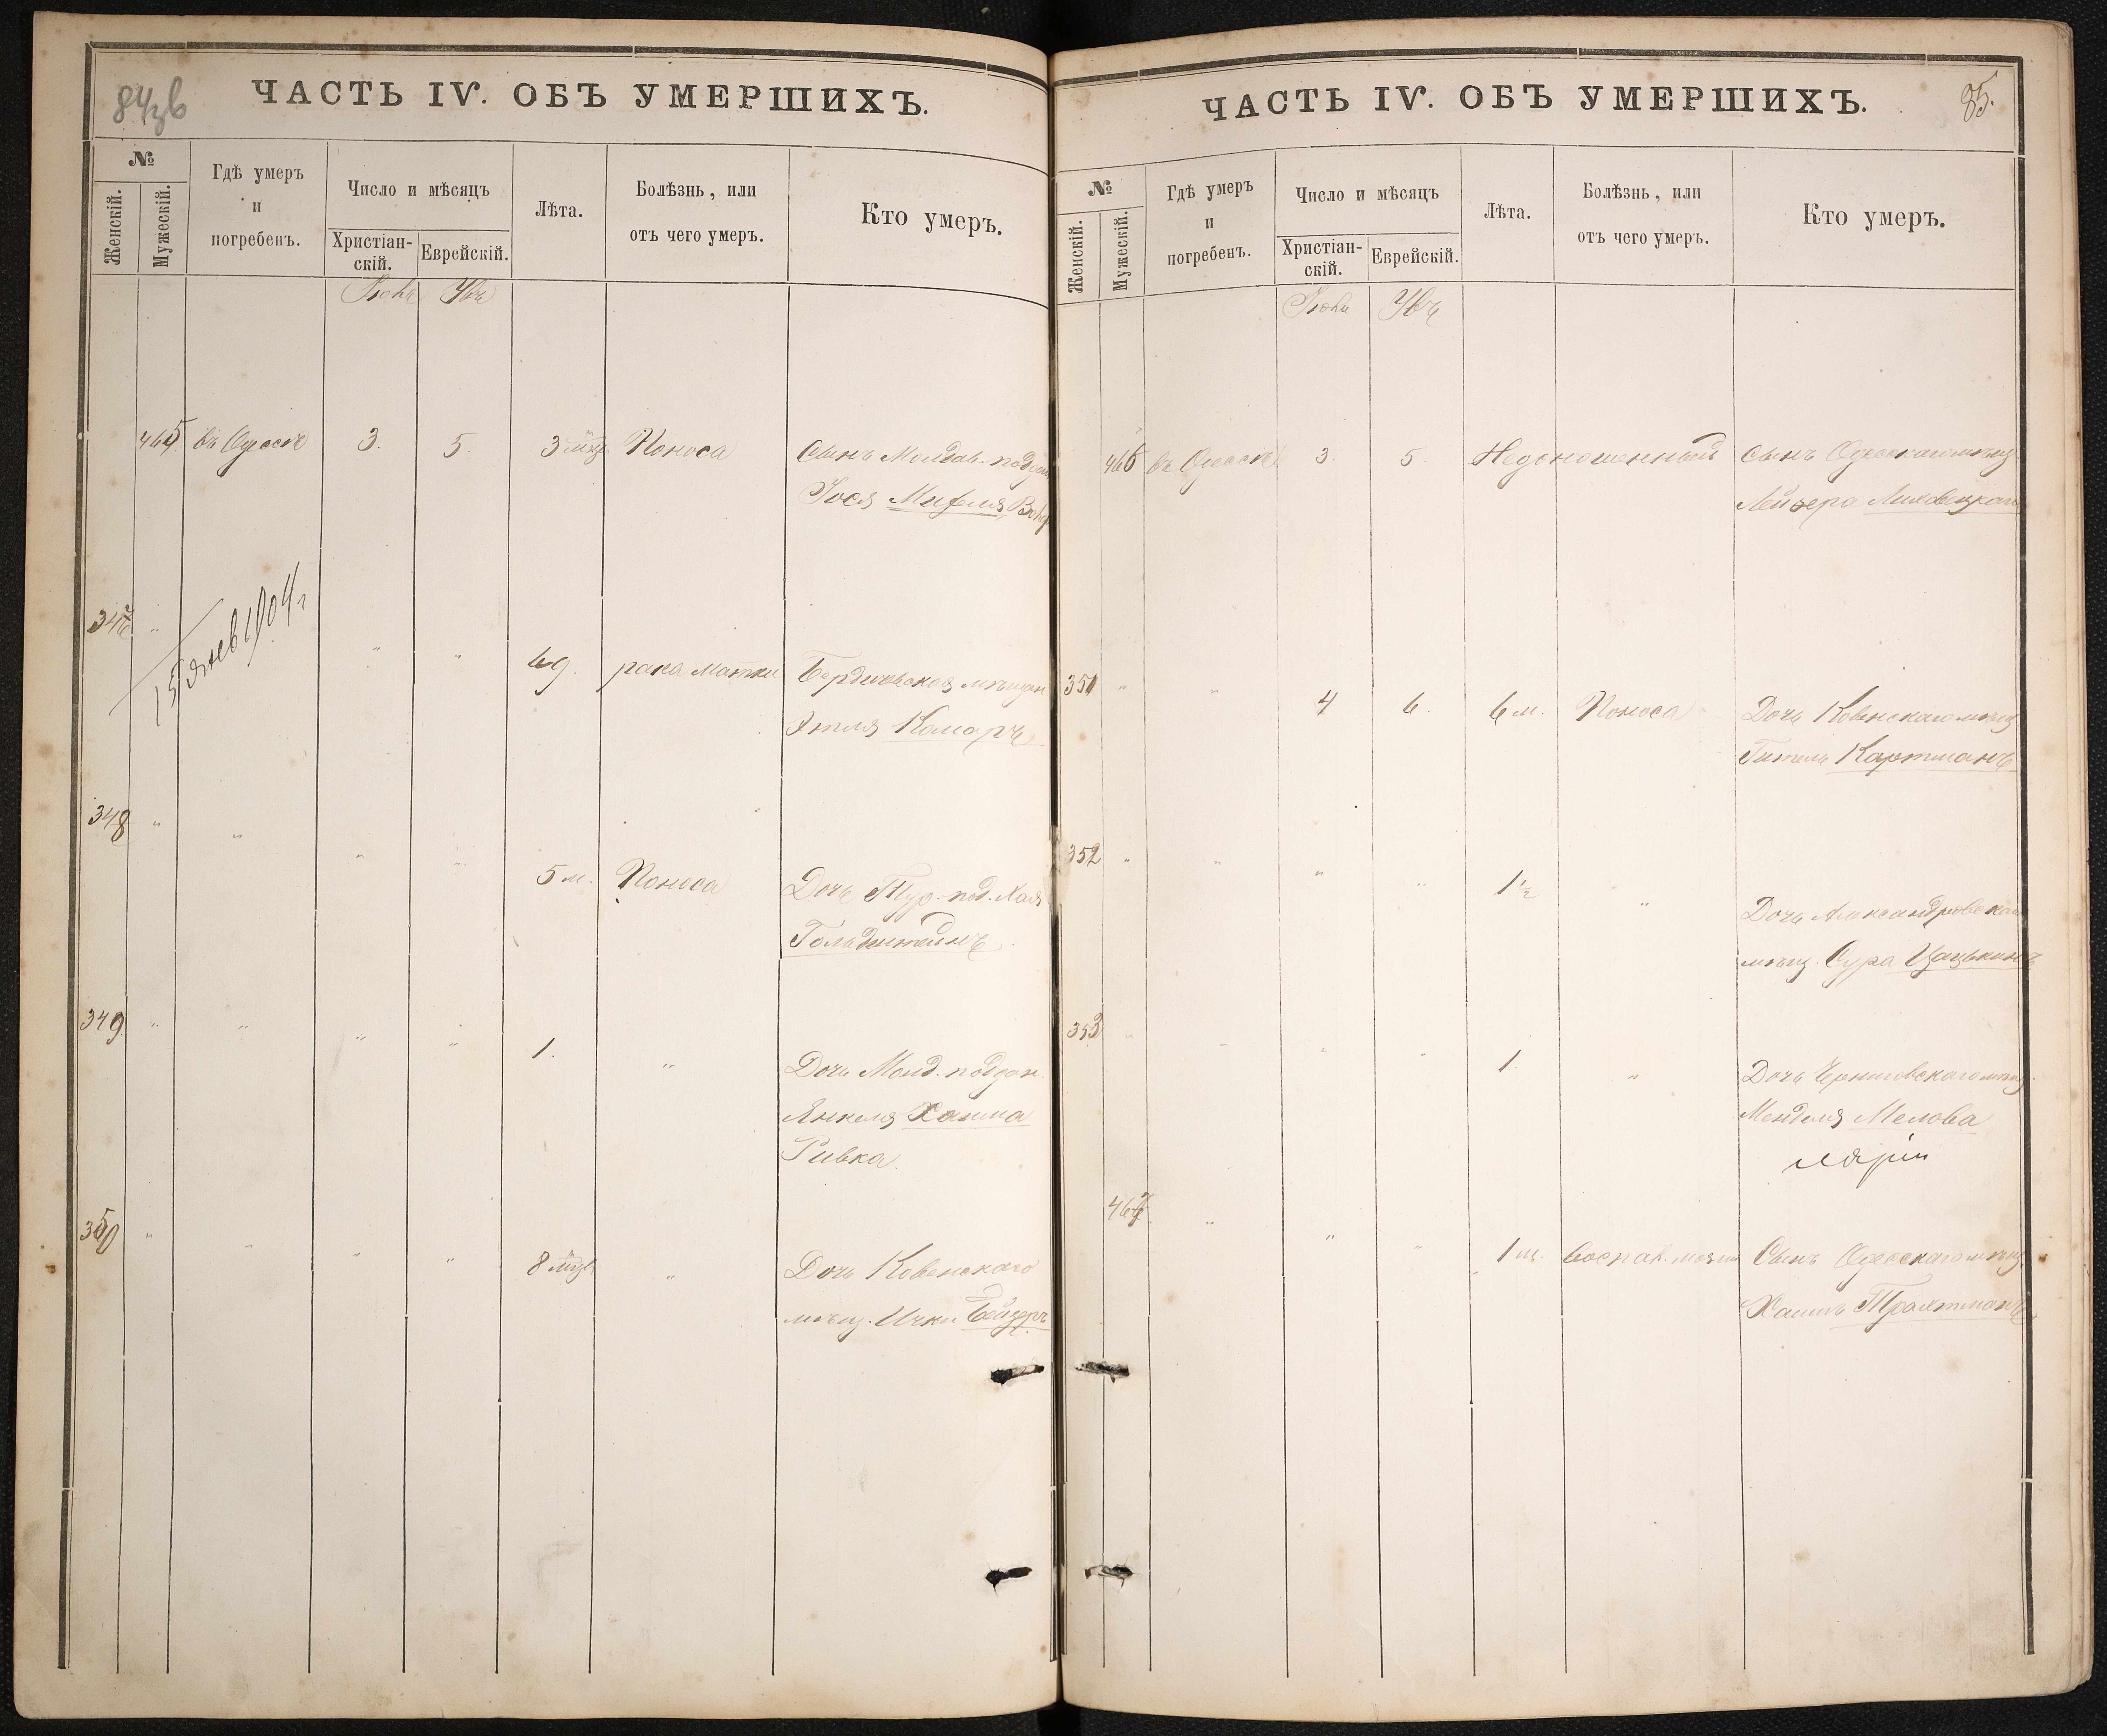 84зв
ЧАСТЬ IV. ОБЪ УМЕРШИХЪ.
№
Женскій.
Мужескій.
Гдѣ умеръ
и
погребенъ.
Число и мѣсяцъ
Христіан-
скій.
Еврейскій.
Лѣта.
Болѣзнь, или
отъ чего умеръ.
Кто умеръ.
465 въ Одессѣ 3. 5. 3 мѣс Поноса Сынъ Молдав. поддан
Іося
347 "
15 янв 1904 г
" " 69. рака матки Бердичевская мѣщан
Этля Комаръ
348 " "
" " 5 м. Поноса Дочь Тур. под. Хая
Гольденштейнъ
349 " " " " 1. " Дочь Молд. поддан.
Янкеля Хаима
Ривка.
350 " " " " 8 мѣс " Дочь Ковенскаго
мѣщ. Ички
85.
ЧАСТЬ IV. ОБЪ УМЕРШИХЪ.
№
Женскій.
Мужескій.
Гдѣ умеръ
и
погребенъ.
Число и мѣсяцъ
Христіан-
скій.
Еврейскій.
Лѣта.
Болѣзнь, или
отъ чего умеръ.
Кто умеръ.
466 въ Одессѣ 3. 5. Недоношенный Сынъ Одесскаго мѣщ
Лейзера
351 " " 4 6. 6 м. Поноса Дочь Ковенскаго мѣщ
Гитель Картманъ
352 " " " " 1½ " Дочь Александровскаго
мѣщ. Сура
353 " " " " 1. " Дочь Черниговскаго мѣщ.
Менделя Мелова
467 " " " 1 м. Воспал. мозга Сынъ Одесскаго мѣщ.
Хаимъ Трахтманъ